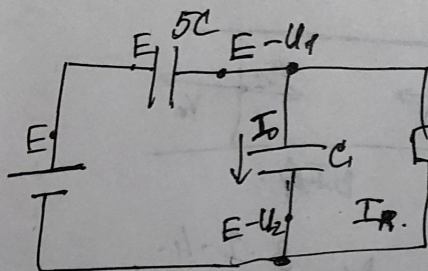 E 5C E-U1
E I0 C
E-U2 IR.